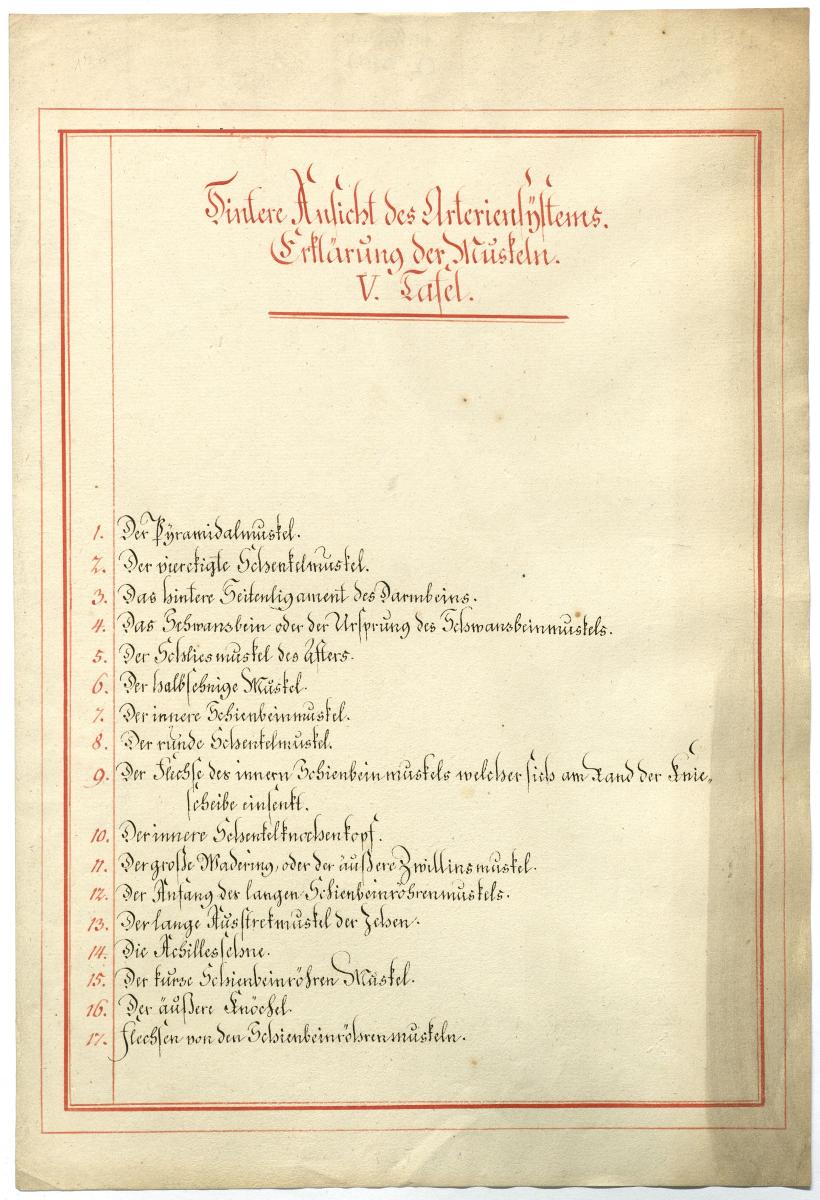 Hintere Ansicht des Arteriensÿstems.
Erklärung der Muskeln.
V. Tafel.
1. Der Pÿramidalmuskel.
2. Der vierekigte Schenkelmuskel.
3. Das hintere Seitenligament des Darmbeins.
4. Das Schwansbein oder der Ursprung des Schwansbeinmuskels.
5. Der Schliesmuskel des Afters.
6. Der halbsehnige Muskel.
7. Der innere Schienbeinmuskel.
8. Der runde Schenkelmuskel.
9. Der Flechse des innern Schienbeinmuskels welcher sich am Rand der Knie-
scheibe einsenkt.
10. Der innere Schenkelknochenkopf.
11. Der große Wadering, oder der äußere Zwillinsmuskel.
12. Der Anfang des langen Schienbeinröhrenmuskels.
13. Der lange Ausstrekmuskel der Zehen.
14. Die Achillessehne.
15. Der kurse Schienbeinröhren Muskel.
16. Der äußere Knöchel.
17. Flechsen von den Schienbeinröhrenmuskeln.